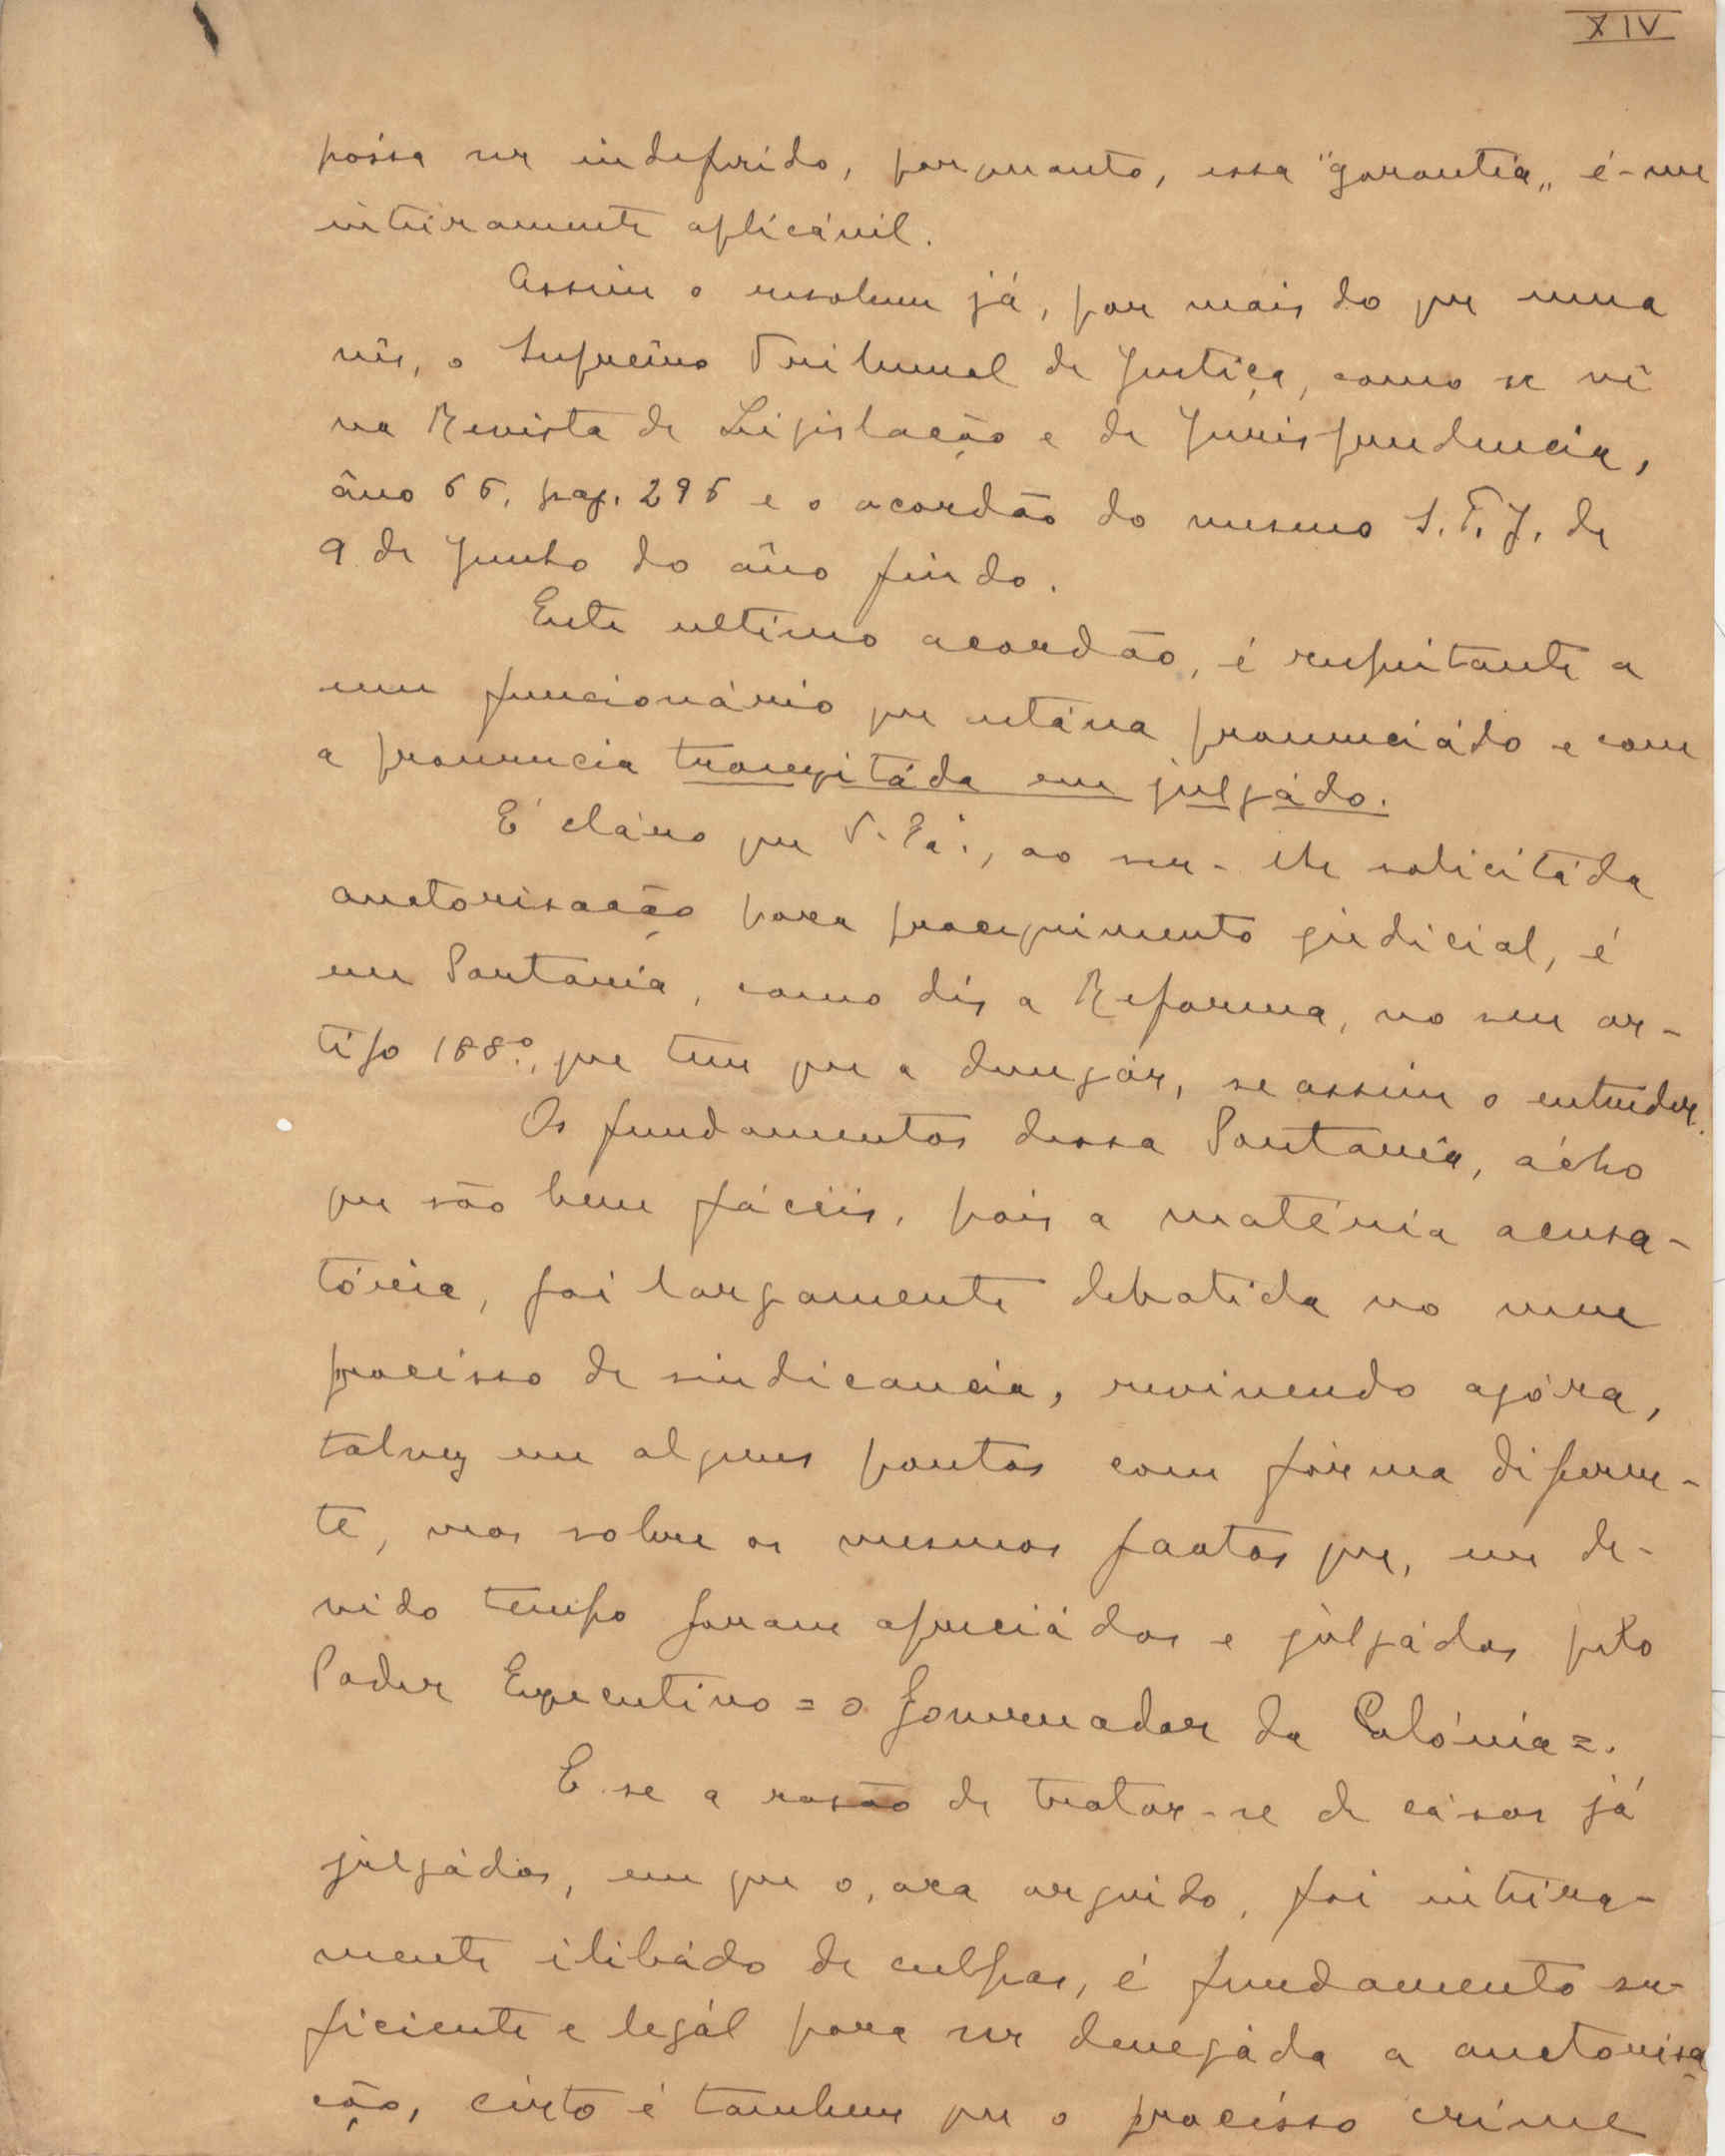 XIV
póssa ser indeferido, porquanto, essa "garantia„ é-me
inteiramente aplicável.
Assim o resolveu já, por mais do que uma
vês, o Suprêmo Tribunal de Justiça, como se vê
na Revista de Legislação e de Jurisprudencia,
âno 65, pag. 295 e o acordão do mesmo S.T.J. de
9 de Junho do âno findo.
Este ultimo acordão, é respeitante a
um funcionário que estáva pronunciádo e com
a pronuncia transitáda em julgádo.
É cláro que V. Exª., ao ser-lhe solicitáda
auctorisação para proseguimento judicial, é
em Portaria, como dis a Reforma, no seu ar-
tigo 188º., que tem que a denegár, se assim o entender.
Os fundamentos dessa Portaria, ácho
que são bem fáceis, pois a matéria acusa-
tória, foi largamente debatida no meu
procésso de sindicancia, revivendo agóra,
talvez em alguns pontos com fórma diferen-
te, mas sobre os mesmos factos que, em de-
vido tempo foram apreciádos e julgádos pelo
Poder Executivo = o Governador da Colónia =.
E se a rasão de tratar-se de cásos já
julgádos, em que o, ora arguido, foi inteira-
mente ilibádo de culpas, é fundamento su-
ficiente e legál para ser denegáda a auctorisa
ção, cérto é tambem que o procésso crime